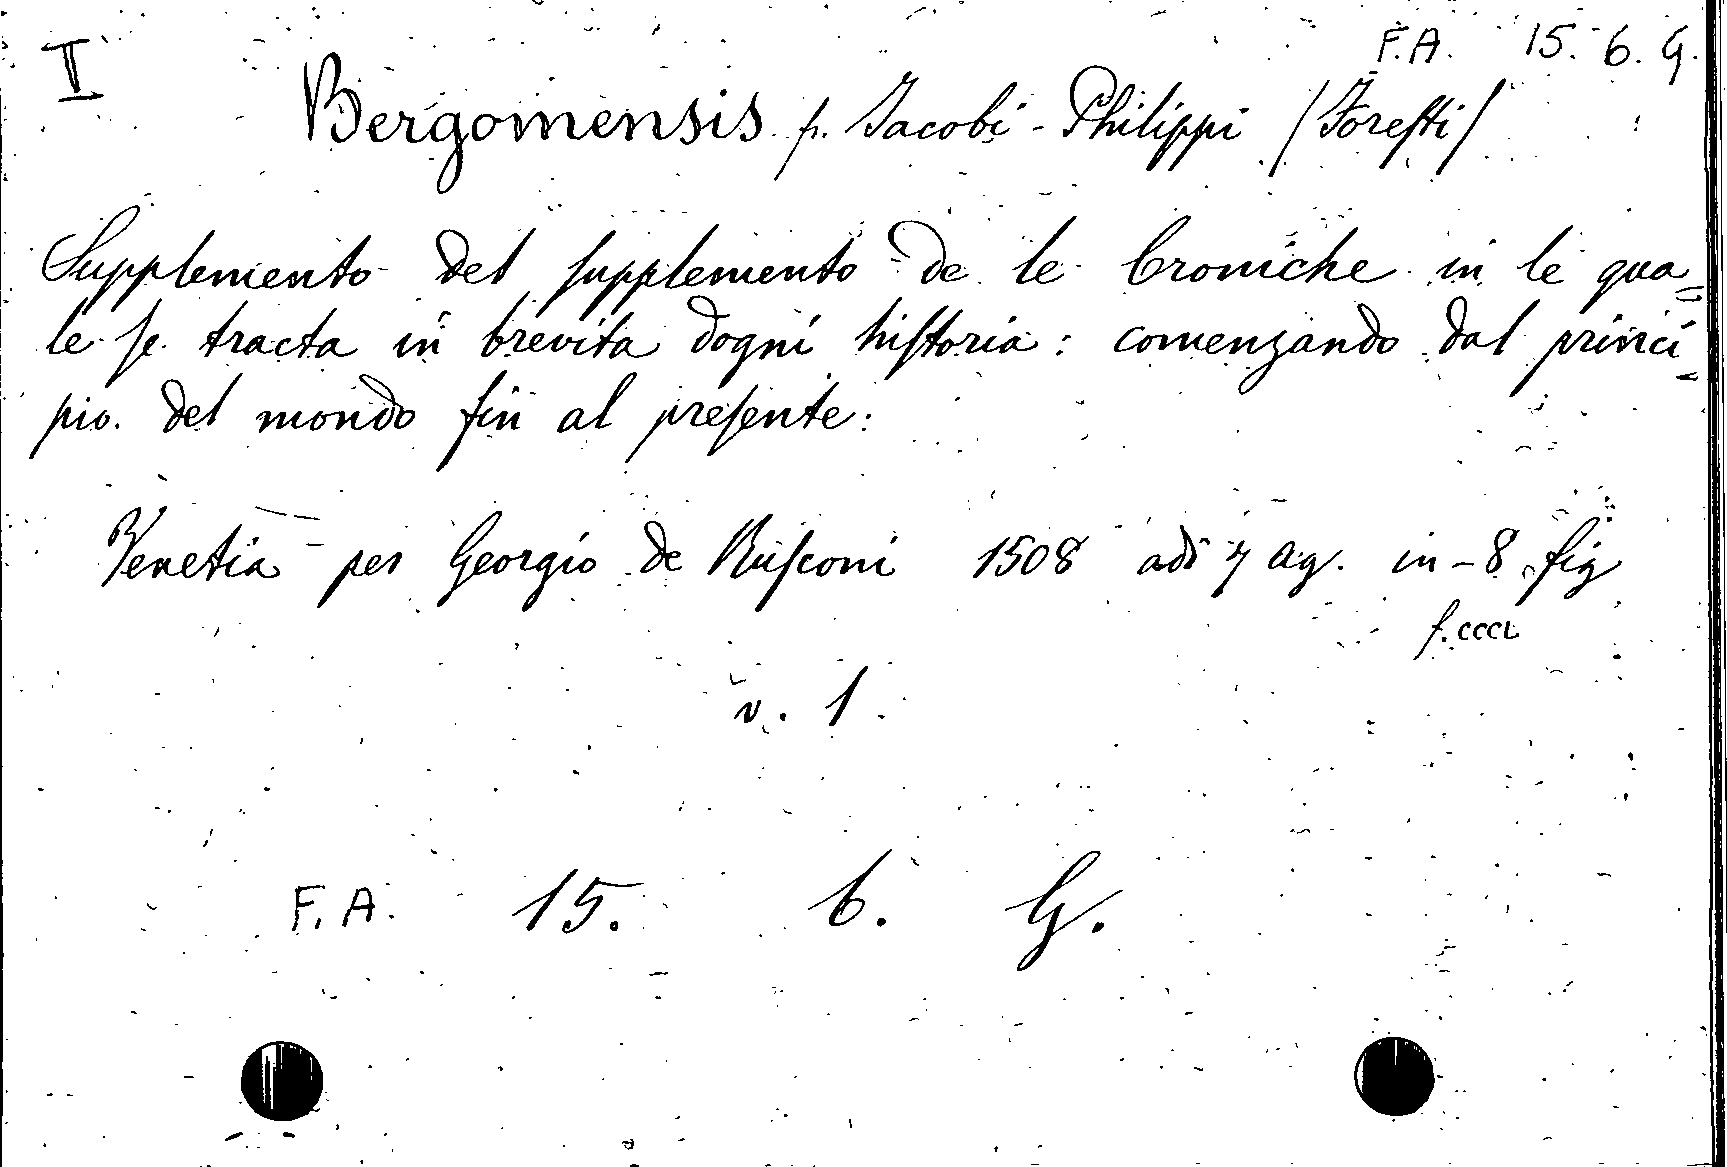 I
F.A. 15. 6. G.
Bergomensis f. Jacobi - Philippi /Foresti/
Supplemento del supplemento de le Croniche in le qua=
le se tracta in brevita dogni historia: comenzando dal princi=
pio. del mondo fin al presente:
Venetia per Georgio de Rusconi 1508 adi 4 ag. in - 8 fig
f. CCCL
v. 1.
F.A. 15. 6. G.